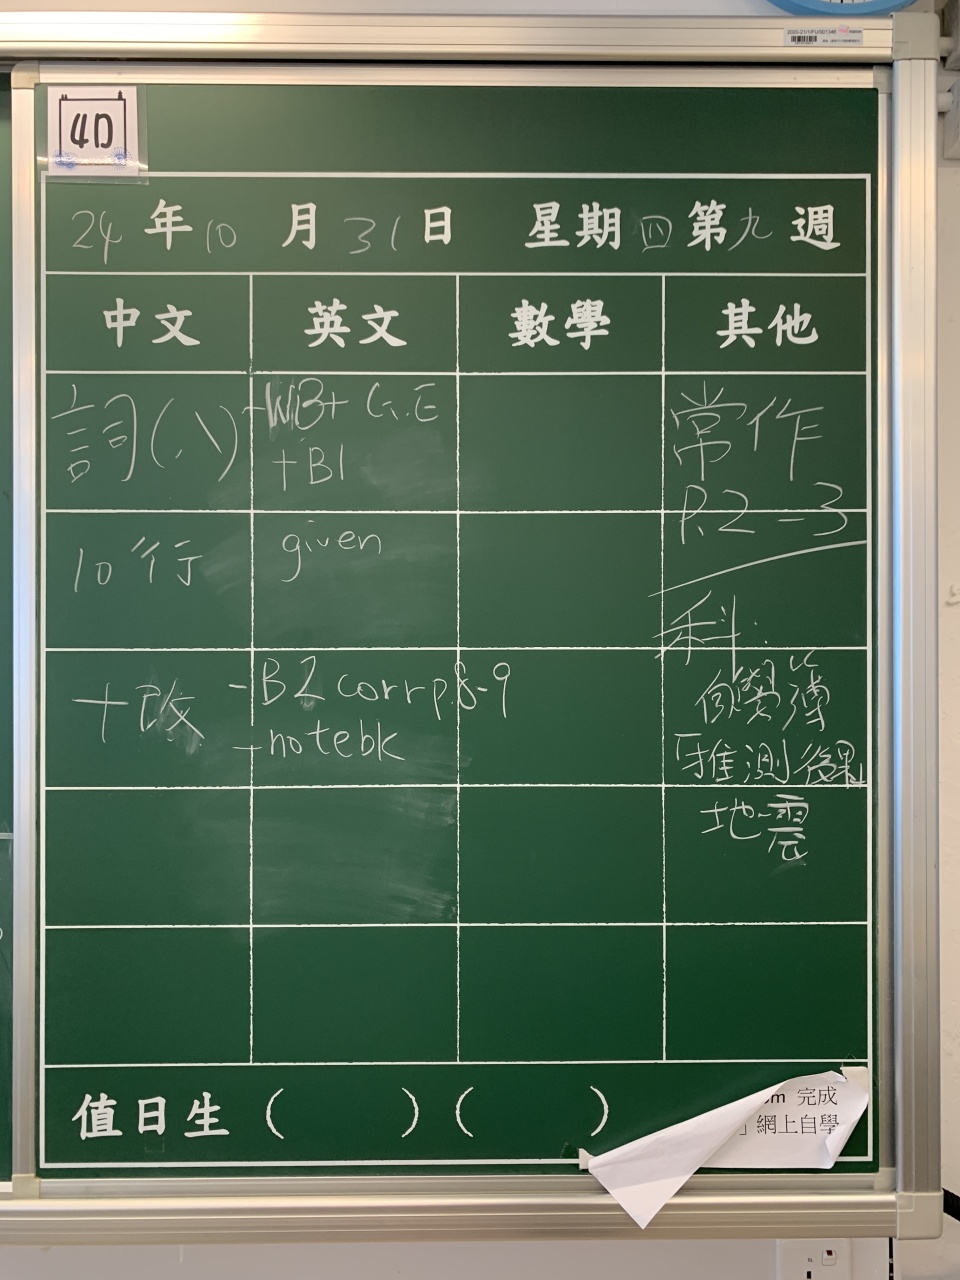 4D
24年10月31日 星期四第九週
中文 英文 數學 其他
詞(八)
10行
十改
-WB+G.E
+B1
given
-B2 corr p.8-9
-notebk
常作
P.2-3
科:
自學簿
「推測後果」
地震
值日生( )( )
完成
」網上自學